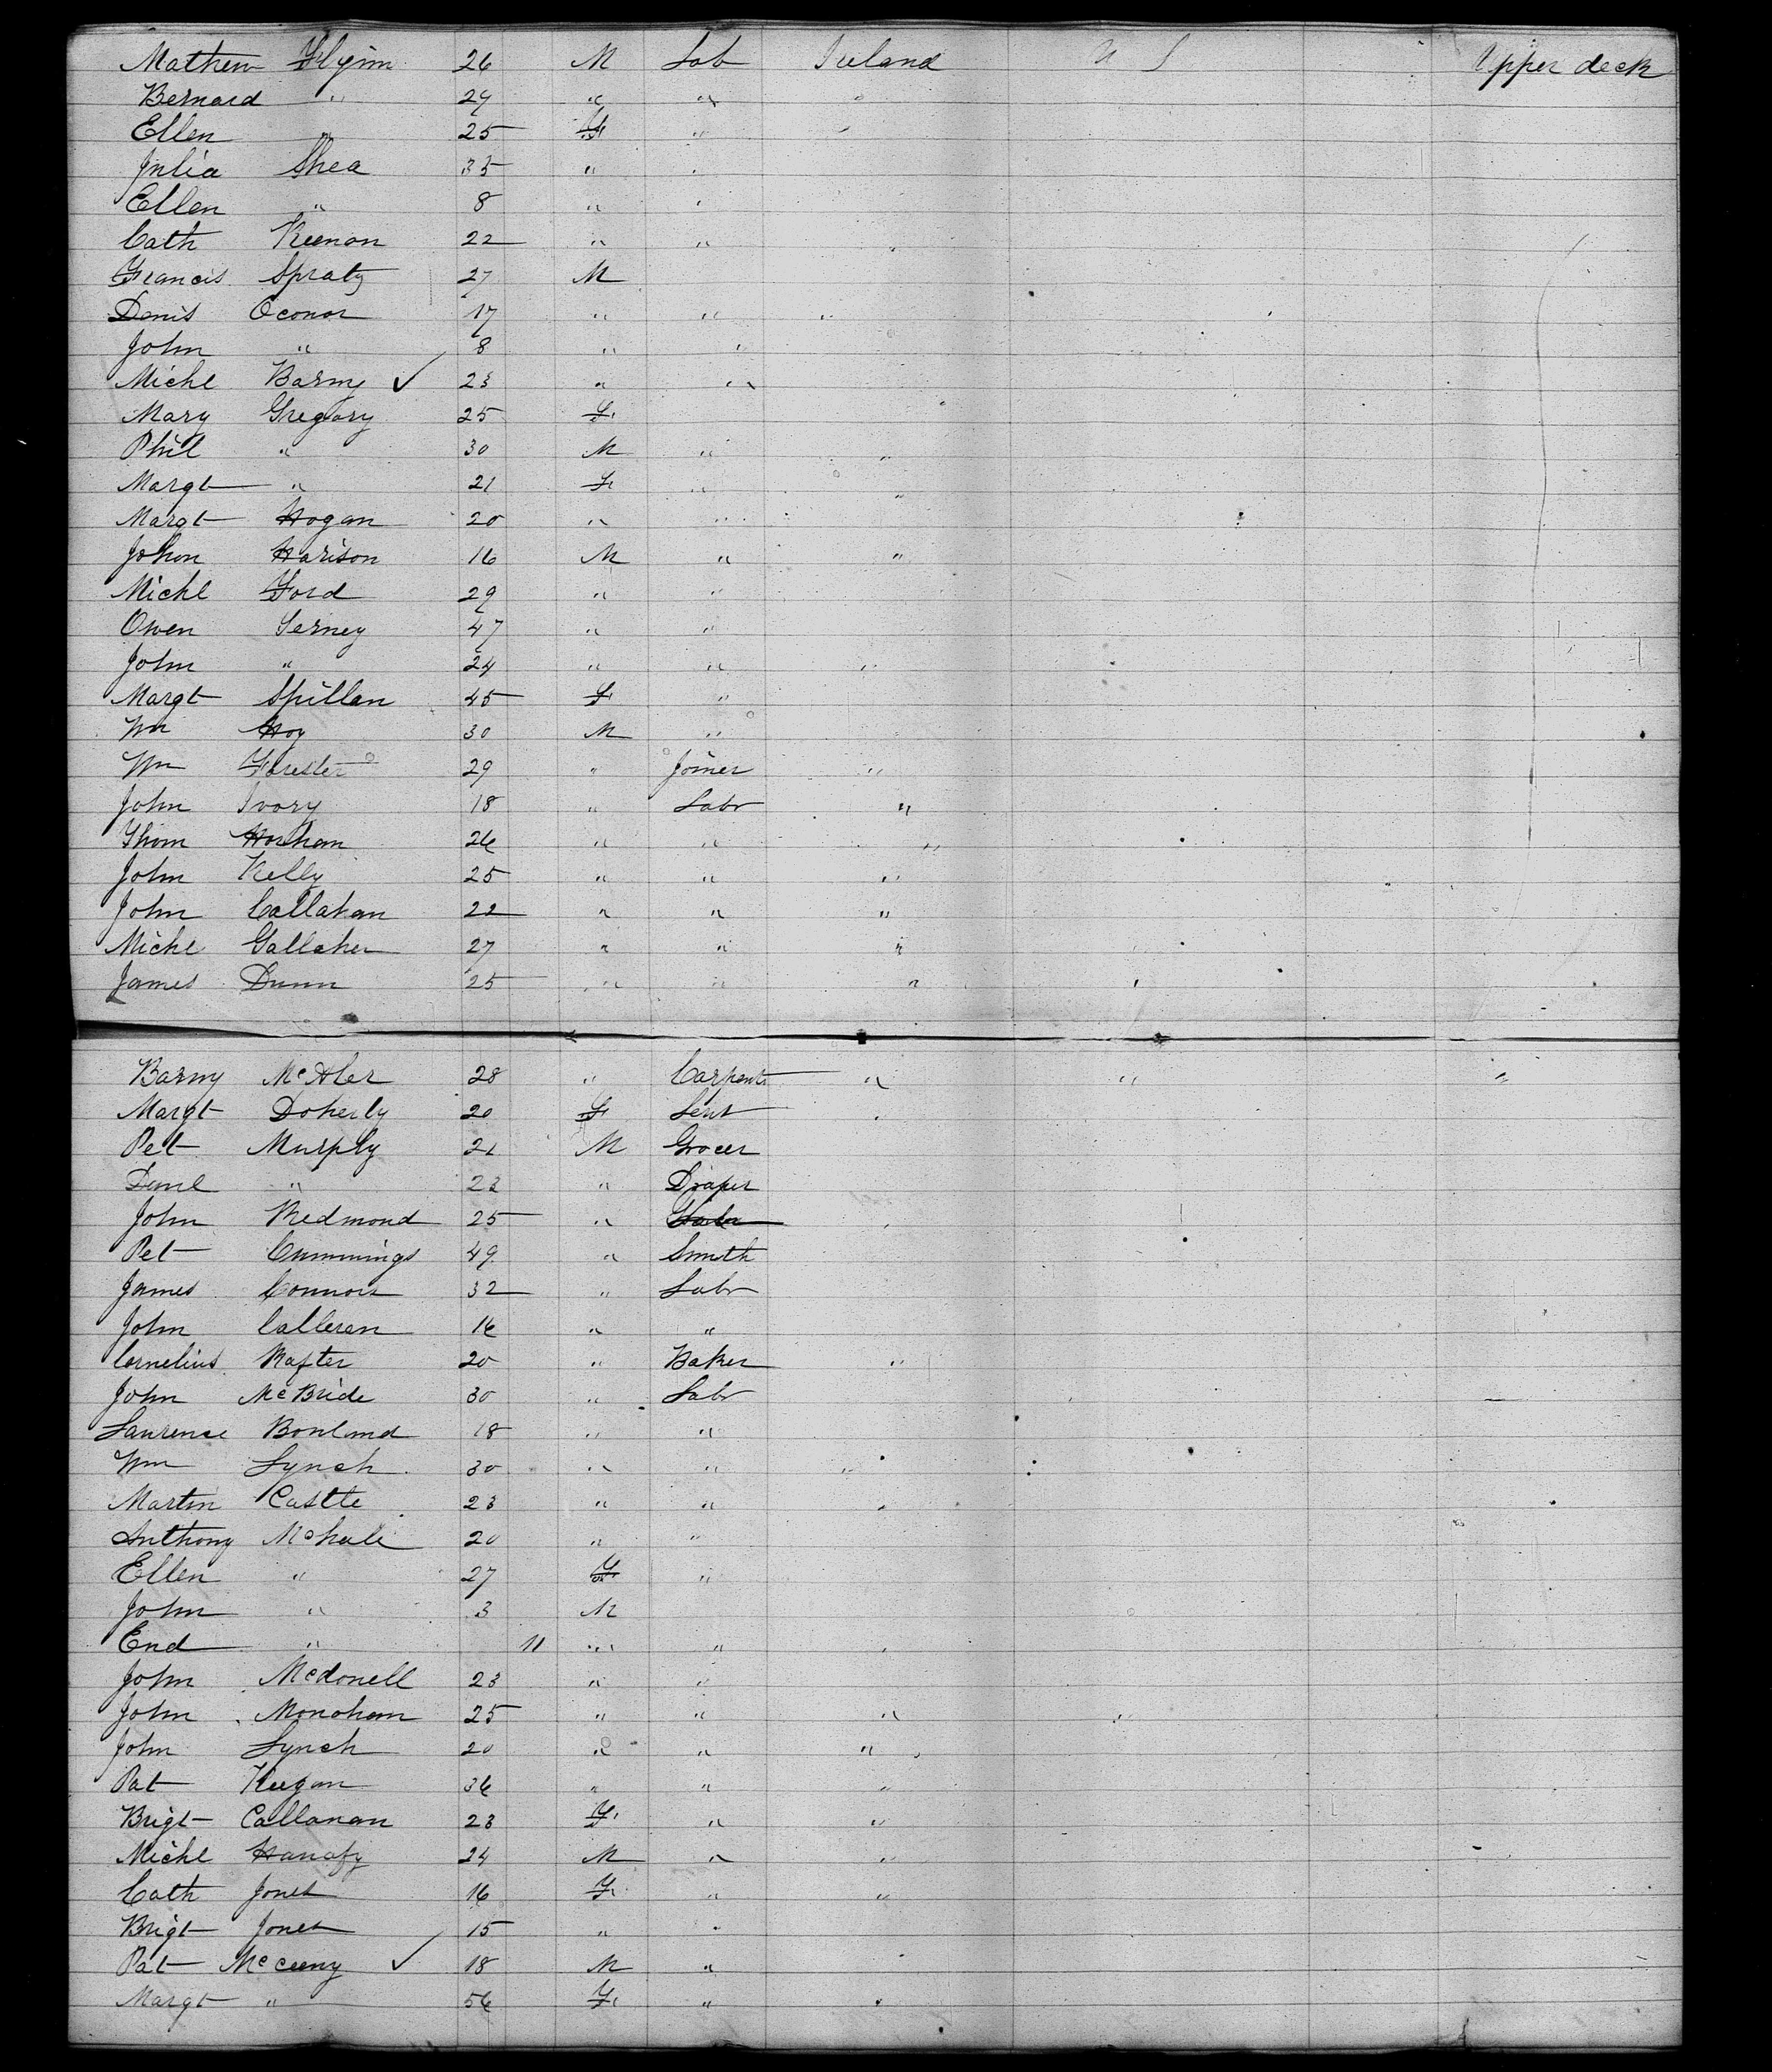 Mathew Flynn 26 M Lab Ireland U S Upper deck
Bernard " 24 " " "
Ellen " 25 F " "
Julia Shea 35 " "
Ellen " 8 " "
Cath Keenan 22 " " "
Francis Spratz 27 M
Denis Oconor 17 " " "
John " 8 " "
Michl Barny ✓ 23 " "
Mary Gregory 25 F
Phil " 30 M " "
Margt " 21 F " "
Margt Hogan 20 " "
Johon Harison 16 M " "
Michl Ford 29 " "
Owen Serney 47 " "
John " 24 " " "
Margt Spillan 45 F "
Wm Hoy 30 M "
Wm Forester 29 " Joiner "
John Ivory 18 " Labr "
Thom Horham 26 " " "
John Kelly 25 " " "
John Callahan 22 " " "
Michl Gallaher 27 " " "
James Dunn 25 " " " "
Barny McAler 28 " Carpent " " "
Margt Doherty 20 F Sert
Pet Murphy 21 M Grocer
Danl " 23 " Draper
John Redmond 25 "
Pet Cummings 49 " Smith
James Connors 32 " Labr
John Calleran 16 " "
Cornelius Rafter 20 " Baker "
John McBride 30 " Labr
Laurence Bonland 18 " "
Wm Lynch 30 " " "
Martin Castle 23 " " "
Anthony McHale 20 " "
Ellen " 27 F "
John " 3 M
End " 11 " "
John Mcdonell 23 " "
John Monoham 25 " " " "
John Lynch 20 " " "
Pat Keegan 36 " " "
Brigt Callanan 23 F " "
Michl Hanafy 24 M " "
Cath Jones 16 F " "
Brigt Jones 15 " "
Pat McCeeny ✓ 18 M "
Margt " 56 F " "